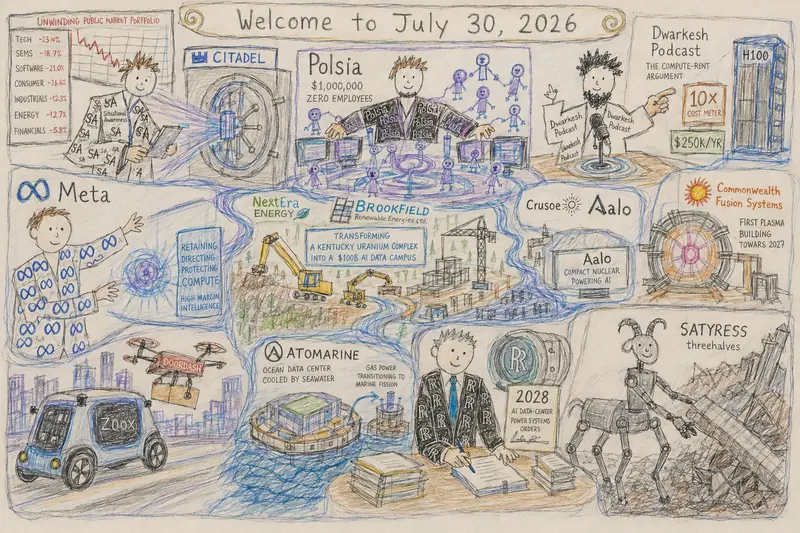 Welcome to July 30, 2026
UNWINDING PUBLIC MARKET PORTFOLIO
TECH -23.4%
SEMS -18.7%
SOFTWARE -21.0%
CONSUMER -16.6%
INDUSTRIALS -12.3%
ENERGY -12.7%
FINANCIALS -5.8%
SA
SA
Situational
Awareness
SA
SA
SA
SA
SA
CITADEL
Polsia
$1,000,000
ZERO EMPLOYEES
Polsia
Polsia
Polsia
Polsia
Dwarkesh
Podcast
THE COMPUTE-RENT
ARGUMENT
Dwarkesh
Podcast
Dwarkesh
Podcast
Dwarkesh
Podcast
10x
COST METER
$250K/YR
H100
Meta
RETAINING
DIRECTING
PROTECTING
COMPUTE
HIGH MARGIN
INTELLIGENCE
NextEra
ENERGY
BROOKFIELD
Renewable Energies Ltd.
TRANSFORMING
A KENTUCKY URANIUM COMPLEX
INTO A $100B AI DATA CAMPUS
Crusoe
Aalo
Aalo
COMPACT NUCLEAR
POWERING AI
Commonwealth
Fusion Systems
FIRST PLASMA
BUILDING
TOWARDS 2027
DOORDASH
Zoox
ATOMARINE
OCEAN DATA CENTER
COOLED BY SEAWATER
GAS POWER
TRANSITIONING TO
MARINE FISSION
RR
RR
2028
AI DATA-CENTER
POWER SYSTEMS
ORDERS
SATYRESS
threehalves